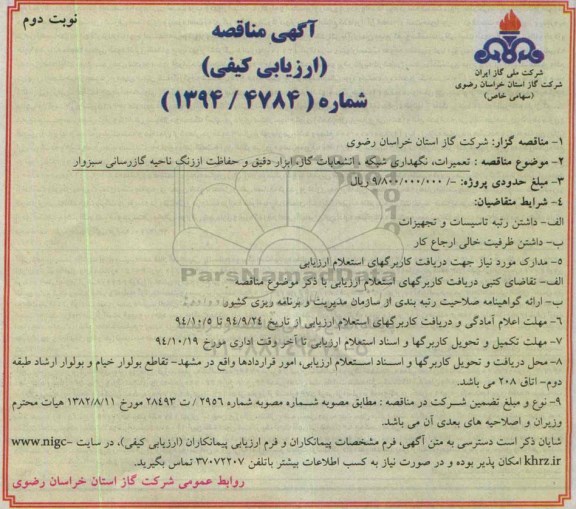 نوبت دوم
آگهی مناقصه
(ارزیابی کیفی)
شماره (۴۷۸۴ / ۱۳۹۴)
شرکت ملی گاز ایران
شرکت گاز استان خراسان رضوی
(سهامی خاص)
۱- مناقصه گزار: شرکت گاز استان خراسان رضوی
۲- موضوع مناقصه : تعمیرات، نگهداری شبکه ، انشعابات گاز، ابزار دقیق و حفاظت اززنگ ناحیه گازرسانی سبزوار
۳- مبلغ حدودی پروژه: -/ ۹/۸۰۰/۰۰۰/۰۰۰ ریال
۴- شرایط متقاضیان:
الف- داشتن رتبه تاسیسات و تجهیزات
ب- داشتن ظرفیت خالی ارجاع کار
۵- مدارک مورد نیاز جهت دریافت کاربرگهای استعلام ارزیابی
الف- تقاضای کتبی دریافت کاربرگهای استعلام ارزیابی با ذکر موضوع مناقصه
ب- ارائه گواهینامه صلاحیت رتبه بندی از سازمان مدیریت و برنامه ریزی کشور
۶- مهلت اعلام آمادگی و دریافت کاربرگهای استعلام ارزیابی از تاریخ ۹۴/۹/۲۴ تا ۹۴/۱۰/۵
۷- مهلت تکمیل و تحویل کاربرگها و اسناد استعلام ارزیابی تا آخر وقت اداری مورخ ۹۴/۱۰/۱۹
۸- محل دریافت و تحویل کاربرگها و اسناد استعلام ارزیابی، امور قراردادها واقع در مشهد- تقاطع بولوار خیام و بولوار ارشاد طبقه
دوم- اتاق ۲۰۸ می باشد.
۹- نوع و مبلغ تضمین شرکت در مناقصه : مطابق مصوبه شماره مصوبه شماره ۲۹۵۶ /ت ۲۸۴۹۳ مورخ ۱۳۸۲/۸/۱۱ هیات محترم
وزیران و اصلاحیه های بعدی آن می باشد.
شایان ذکر است دسترسی به متن آگهی، فرم مشخصات پیمانکاران و فرم ارزیابی پیمانکاران (ارزیابی کیفی)، در سایت www.nigc-
khrz.ir امکان پذیر بوده و در صورت نیاز به کسب اطلاعات بیشتر باتلفن ۳۷۰۷۲۲۰۷ تماس بگیرید.
روابط عمومی شرکت گاز استان خراسان رضوی
ParsNamadData